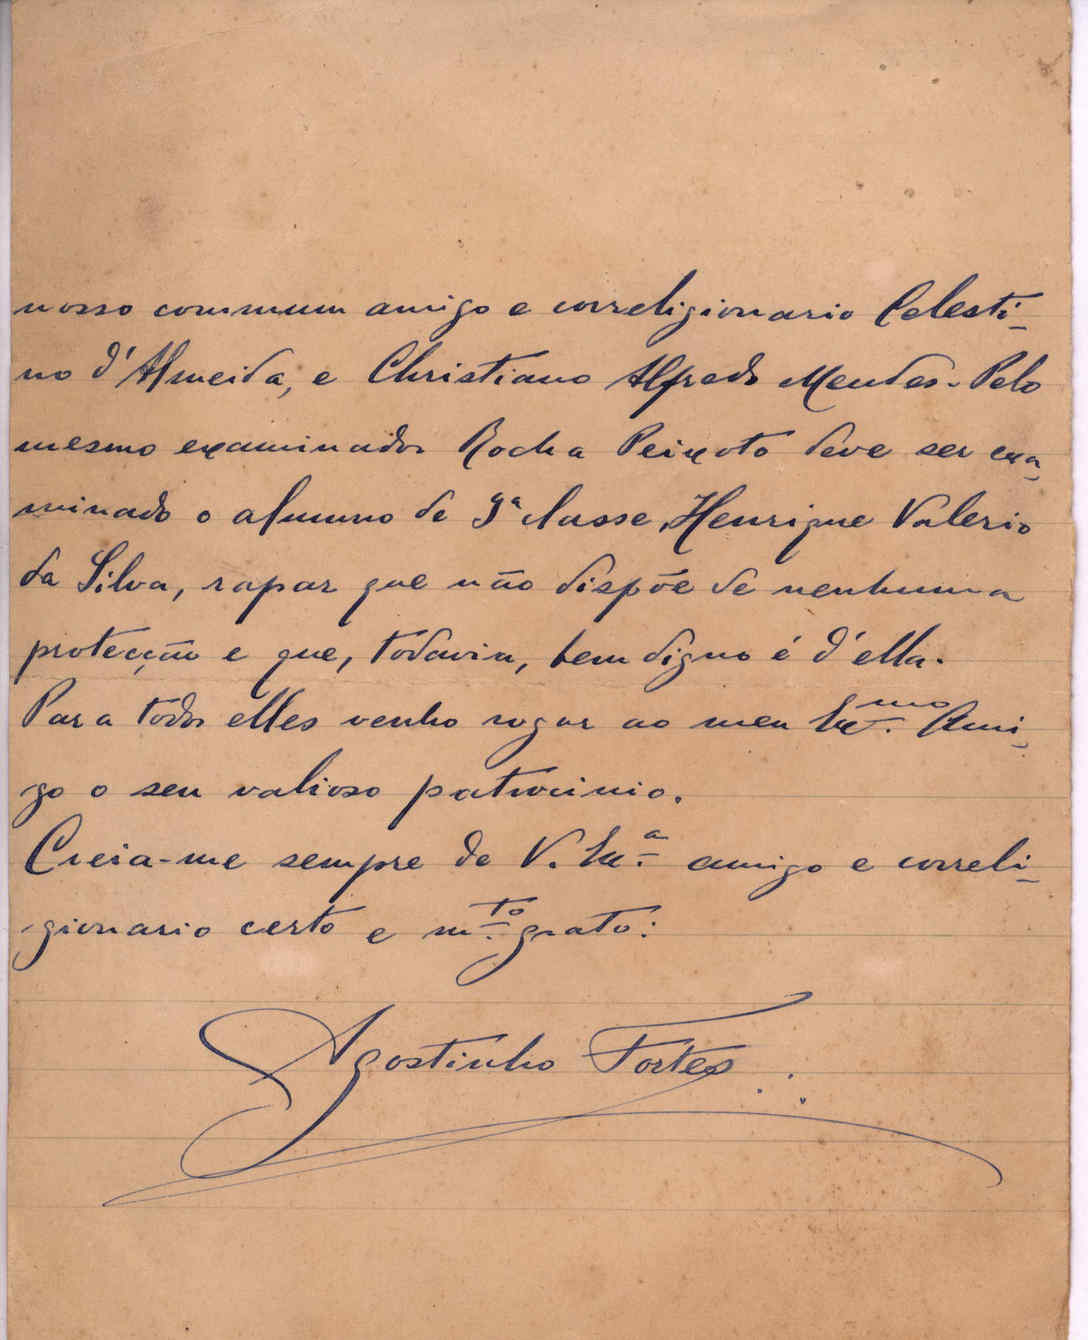 nosso commum amigo e correligionario Celesti-
no d'Almeida, e Christiano Alfredo Mendes. Pelo
mesmo examinador Rocha Peixoto deve ser exa-
minado o alumno de 3ª classe, Henrique Valerio
da Silva, rapaz que não dispõe de nenhuma
protecção e que, todavia, bem digno é d'ella.
Para todos elles venho rogar ao meu Ex.mo Ami-
go o seu valioso patrocinio.
Creia-me sempre de V. Ex.ª amigo e correli-
gionario certo e m.to grato:
Agostinho Fortes